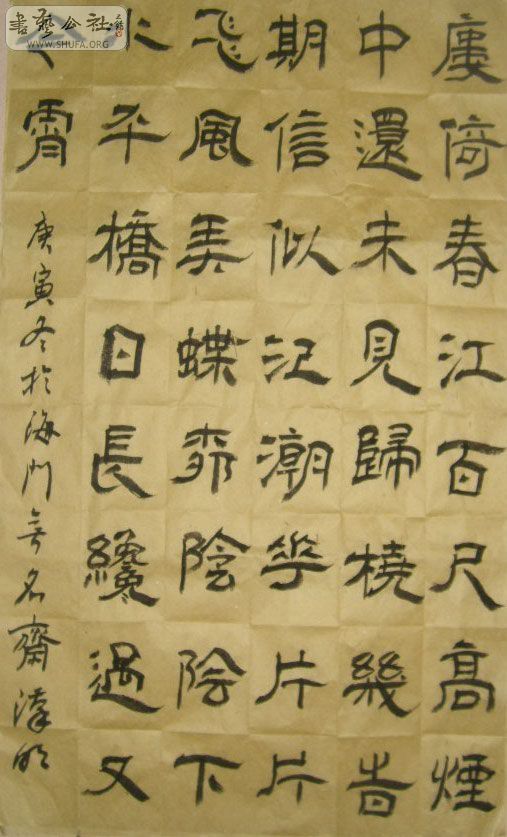 書藝公社
WWW.SHUFA.ORG
廔倚春江百尺高煙
中還未見歸橈幾旹
期信似江潮華片片
飛風弄蝶桺陰陰下
水平橋日長纔過又
今霄
庚寅冬於海門无名齋漢明